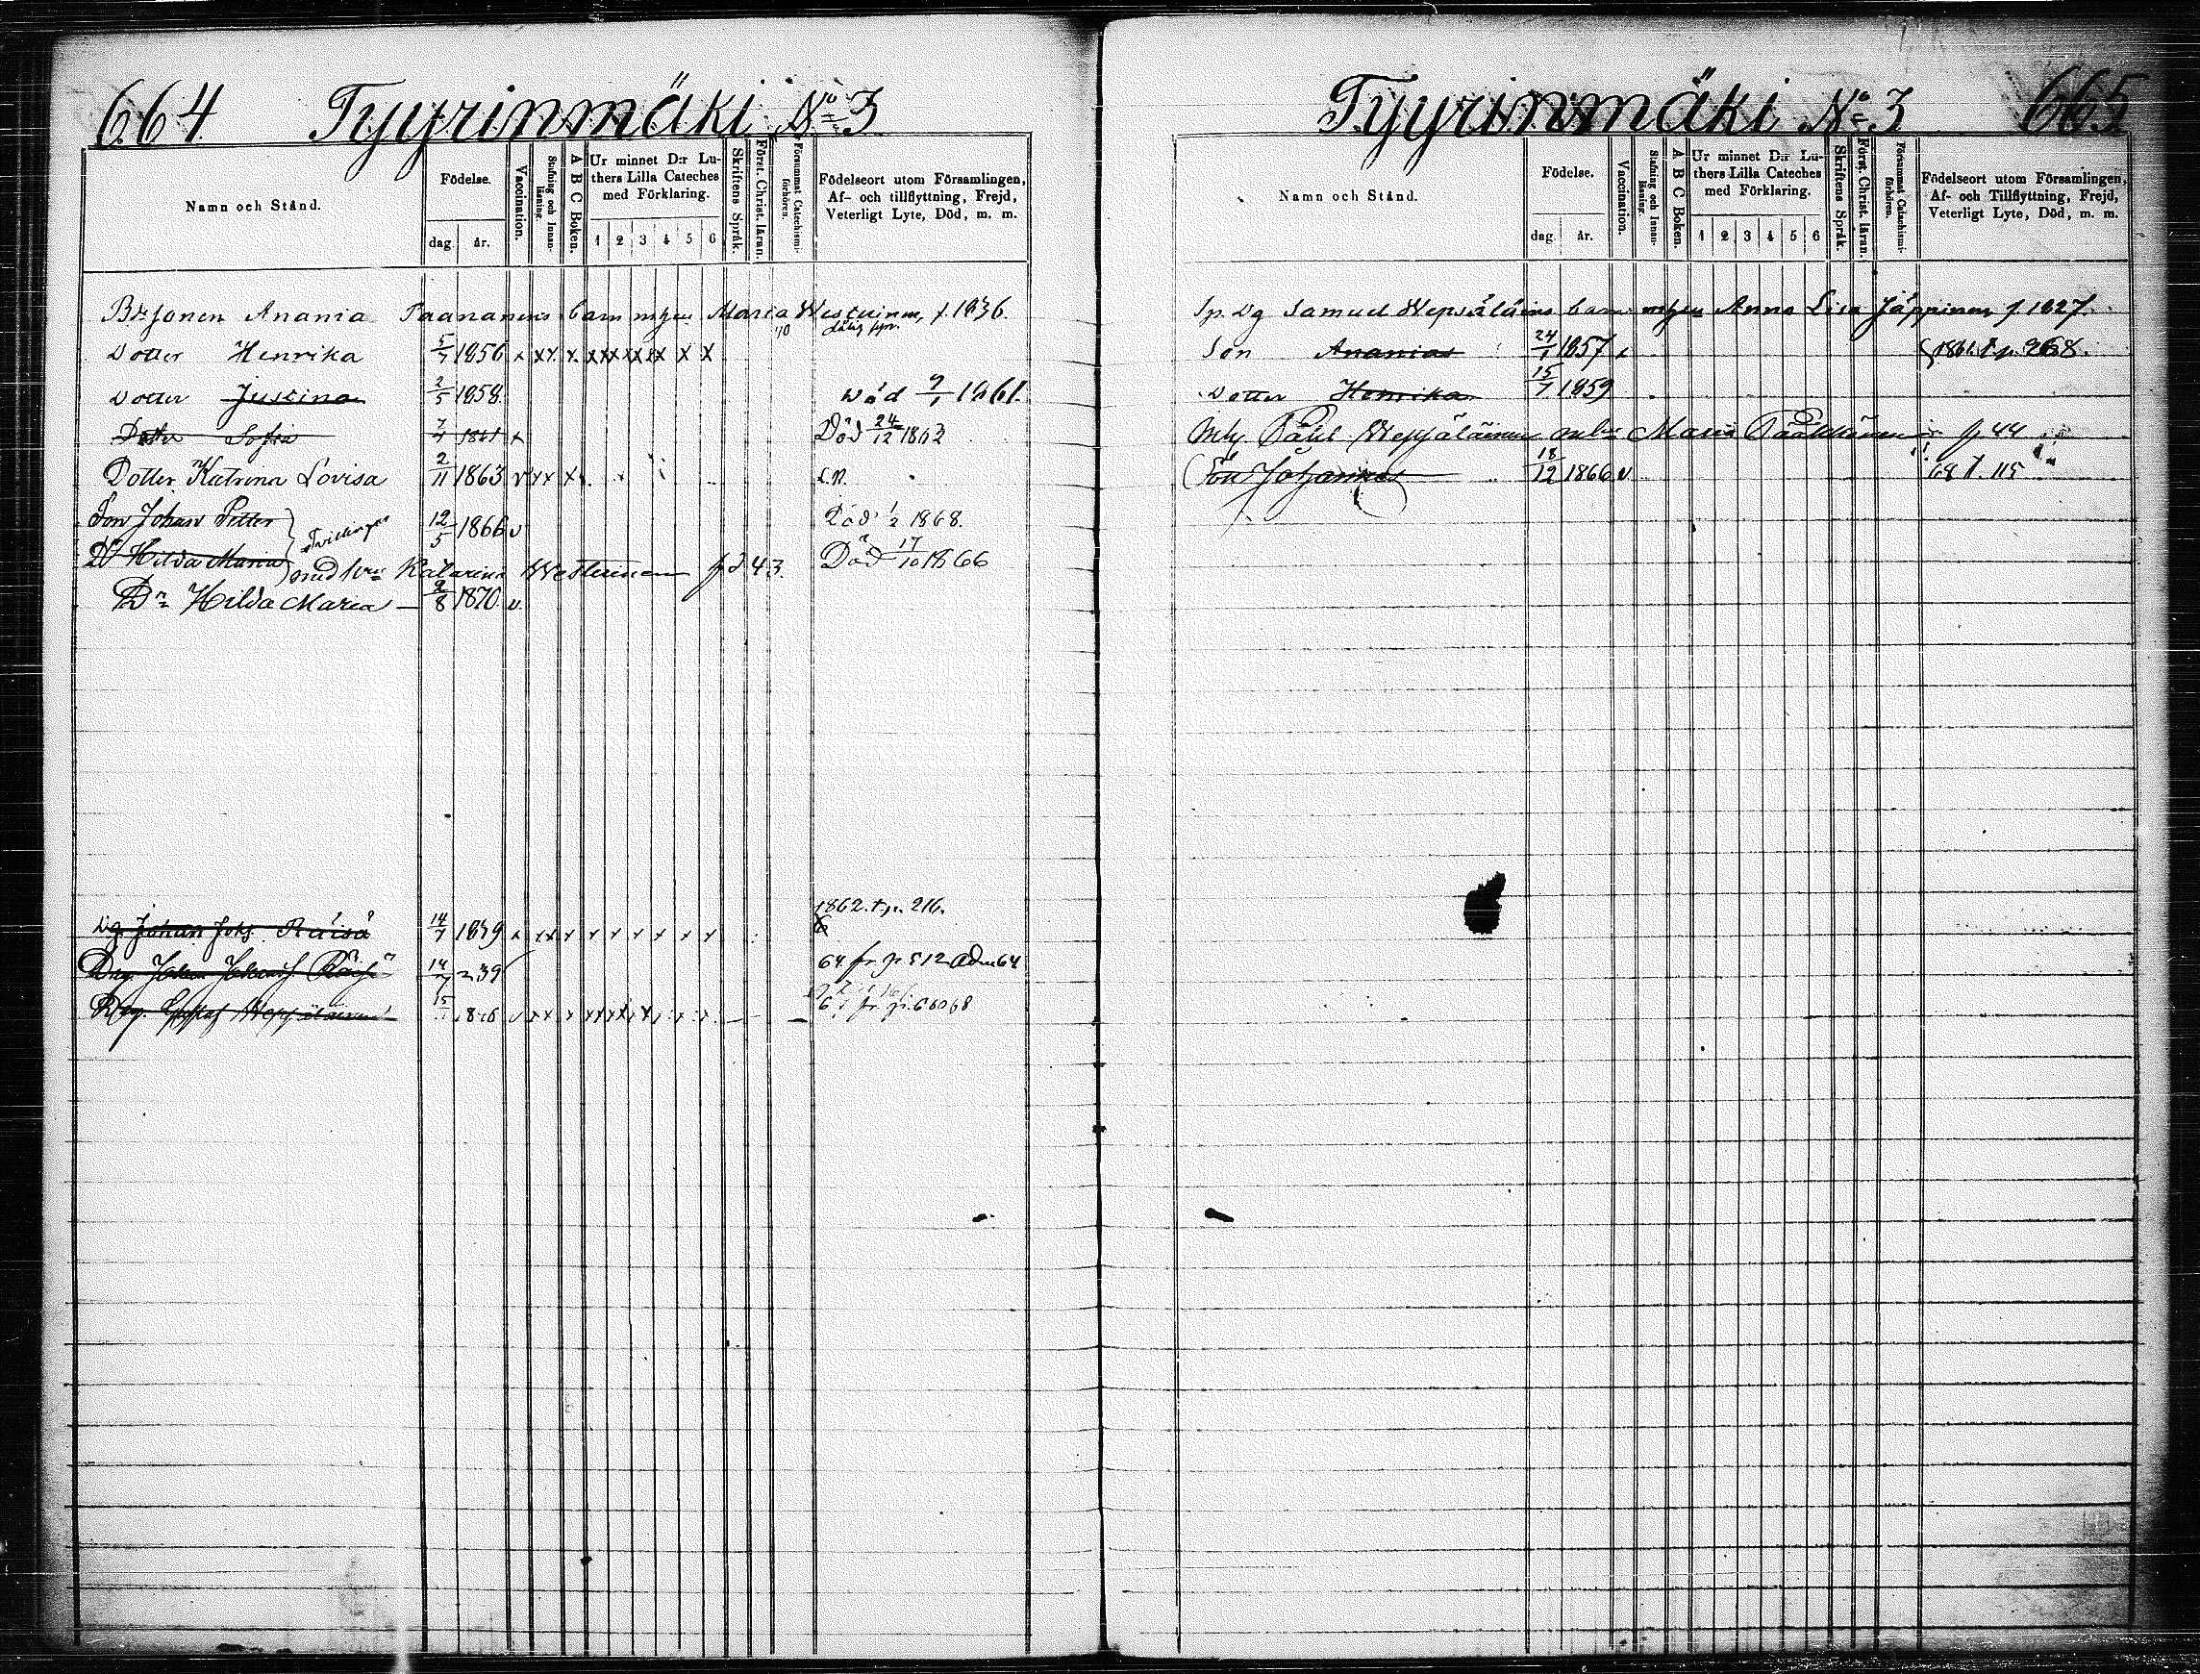 664 Tyyrinmäki No 3
Namn och Stånd.
Födelse.
dag. år.
Vaccination.
Stafning och Innanläsning.
A B C Boken.
Ur minnet D:r Luthers Lilla Cateches med Förklaring.
1 2 3 4 5 6
Skriftens Språk.
Först. Christ. läran.
Försummat Catechismiförhören.
Födelseort utom Församlingen, Af- och tillflyttning, Frejd, Veterligt Lyte, Död, m. m.
Anania Paananens barn Maria Westerinen, f. 1836.
Dotter Henrika 5/7 1856 x x x x x x x x x x x
Dotter Justina 2/5 1858 död 9/1 1861.
Dotter Sofia 7/4 1861 x Död 24/12 1862
Dotter Katrina Lovisa 2/11 1863 v x x x
Son Johan Petter 12/5 1866 v Död 1/2 1868.
Tvillingar
Dr Hilda Maria Död 17/10 1866
med Katarina Westerinen f 43.
Dr Hilda Maria 9/8 1870 v
1862. t. p. 216.
Dg. Johan Joh. Räisä 14/7 1839 x x x x x x x x x x
Drg. Johan Räisä 14/7 39 64 fr. p. 512 adm 64
Drg. Gustaf Wepsäläinen 15 1846 v x x x x x x x
Tyyrinmäki No 3 665
Namn och Stånd.
Födelse.
dag. år.
Vaccination.
Stafning och Innanläsning.
A B C Boken.
Ur minnet D:r Luthers Lilla Cateches med Förklaring.
1 2 3 4 5 6
Skriftens Språk.
Först. Christ. läran.
Försummat Catechismiförhören.
Födelseort utom Församlingen, Af- och Tillflyttning, Frejd, Veterligt Lyte, Död, m. m.
Sp. Dg Samuel Wepsäläins barn Anna Lisa Jäppinen f. 1827.
Son Ananias 24/1 1857 x 1861. t. p. 968.
Dotter Henrika 15/7 1859
Påhl Wepsäläinen Maria Pääkkönen f 44
Son Johannes 18/12 1866 v 68 t. 115